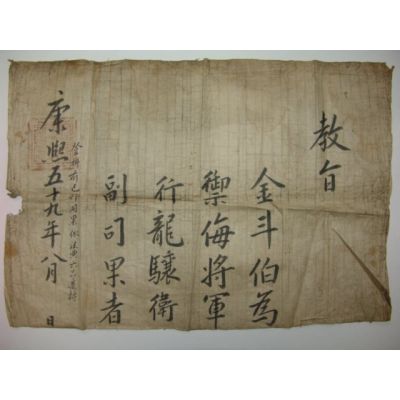 教旨
金斗伯為
禦侮將軍
行龍驤衛
副司果者
康熙五十九年八月 日